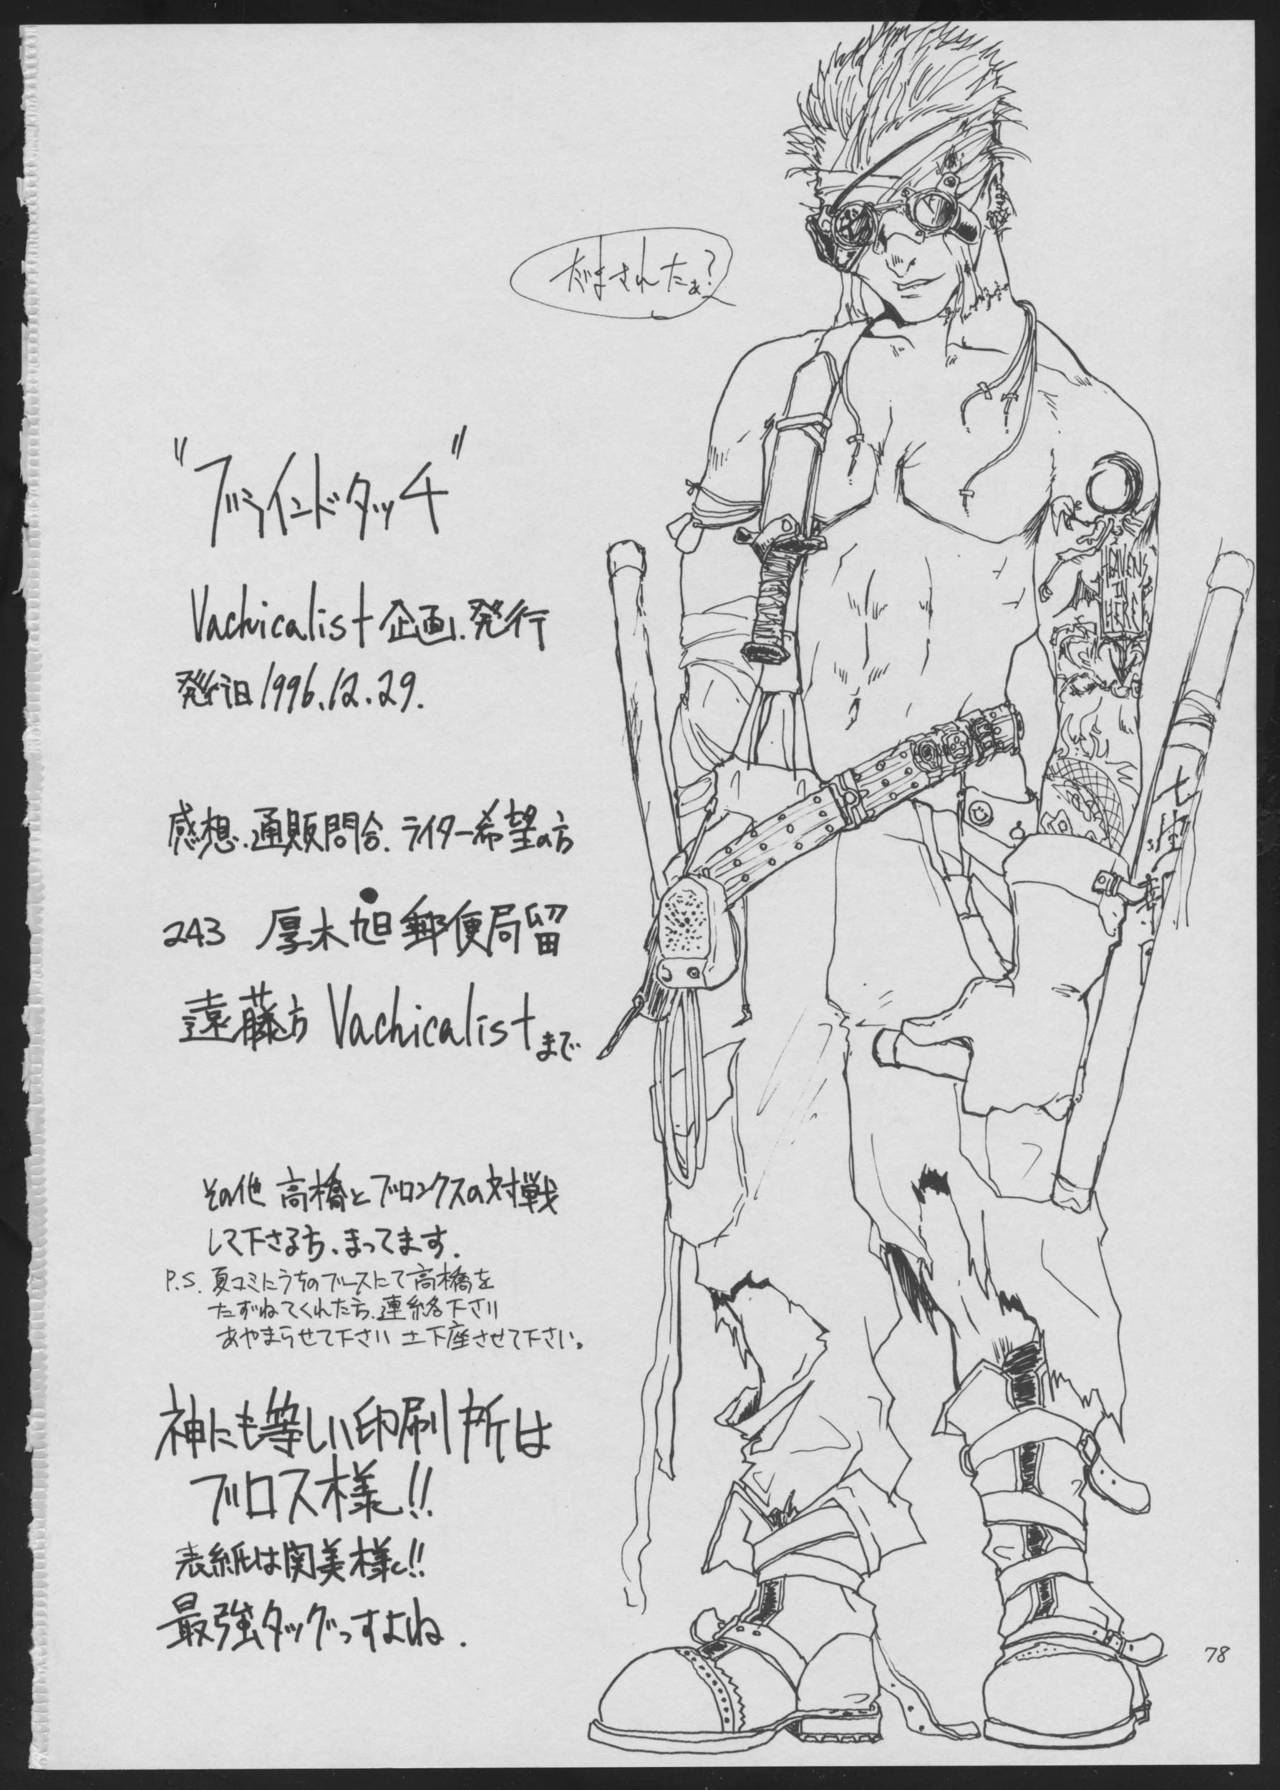 だまされたぁ?
"ブラインドタッチ"
Vachicalist 企画.発行
発行日 1996.12.29.
感想.通販問合.ライター希望の方
243 厚木旭郵便局留
遠藤方 Vachicalistまで
その他 高橋とブロンクスの対戦
して下さる方、まってます.
P.S. 夏コミにうちのブースにて高橋を
たずねてくれた方、連絡下さい
あやまらせて下さい 土下座させて下さい。
神にも等しい印刷所は
ブロス様!!
表紙は関美様!!
最強タッグっすよね.
HEAVENS
IN
HERE
78